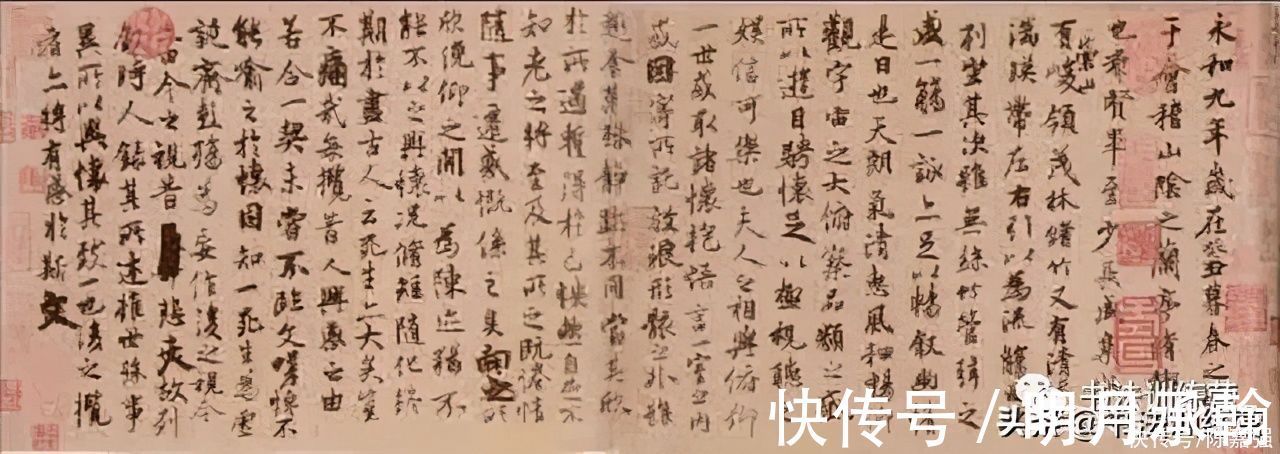 永和九年歲在癸丑暮春之
于會稽山陰之蘭亭脩
也羣賢畢至少長咸集
有崇山峻領茂林脩竹又有清
湍暎帶左右引以為流觴
列坐其次雖無絲竹管弦之
盛一觴一詠亦足以暢敘幽情
是日也天朗氣清惠風和暢仰
觀宇宙之大俯察品類之盛
所以遊目騁懷足以極視聽
娛信可樂也夫人之相與俯仰
一世或取諸懷抱悟言一室之內
或因寄所託放浪形骸之外雖
趣舍萬殊靜躁不同當其欣
於所遇蹔得於己快然自足不
知老之將至及其所之既惓情
隨事遷感慨係之矣向之所
欣俛仰之閒以為陳迹猶不
能不以之興懷況脩短隨化終
期於盡古人云死生亦大矣豈
不痛哉每攬昔人興感之由
若合一契未嘗不臨文嗟悼不
能喻之於懷固知一死生為虛
誕齊彭殤為妄作後之視今
亦由今之視昔悲夫故列
敘時人錄其所述雖世殊事
異所以興懷其致一也後之攬
者亦將有感於斯文
快传号/明月邪翰
快传号/陈嘉强